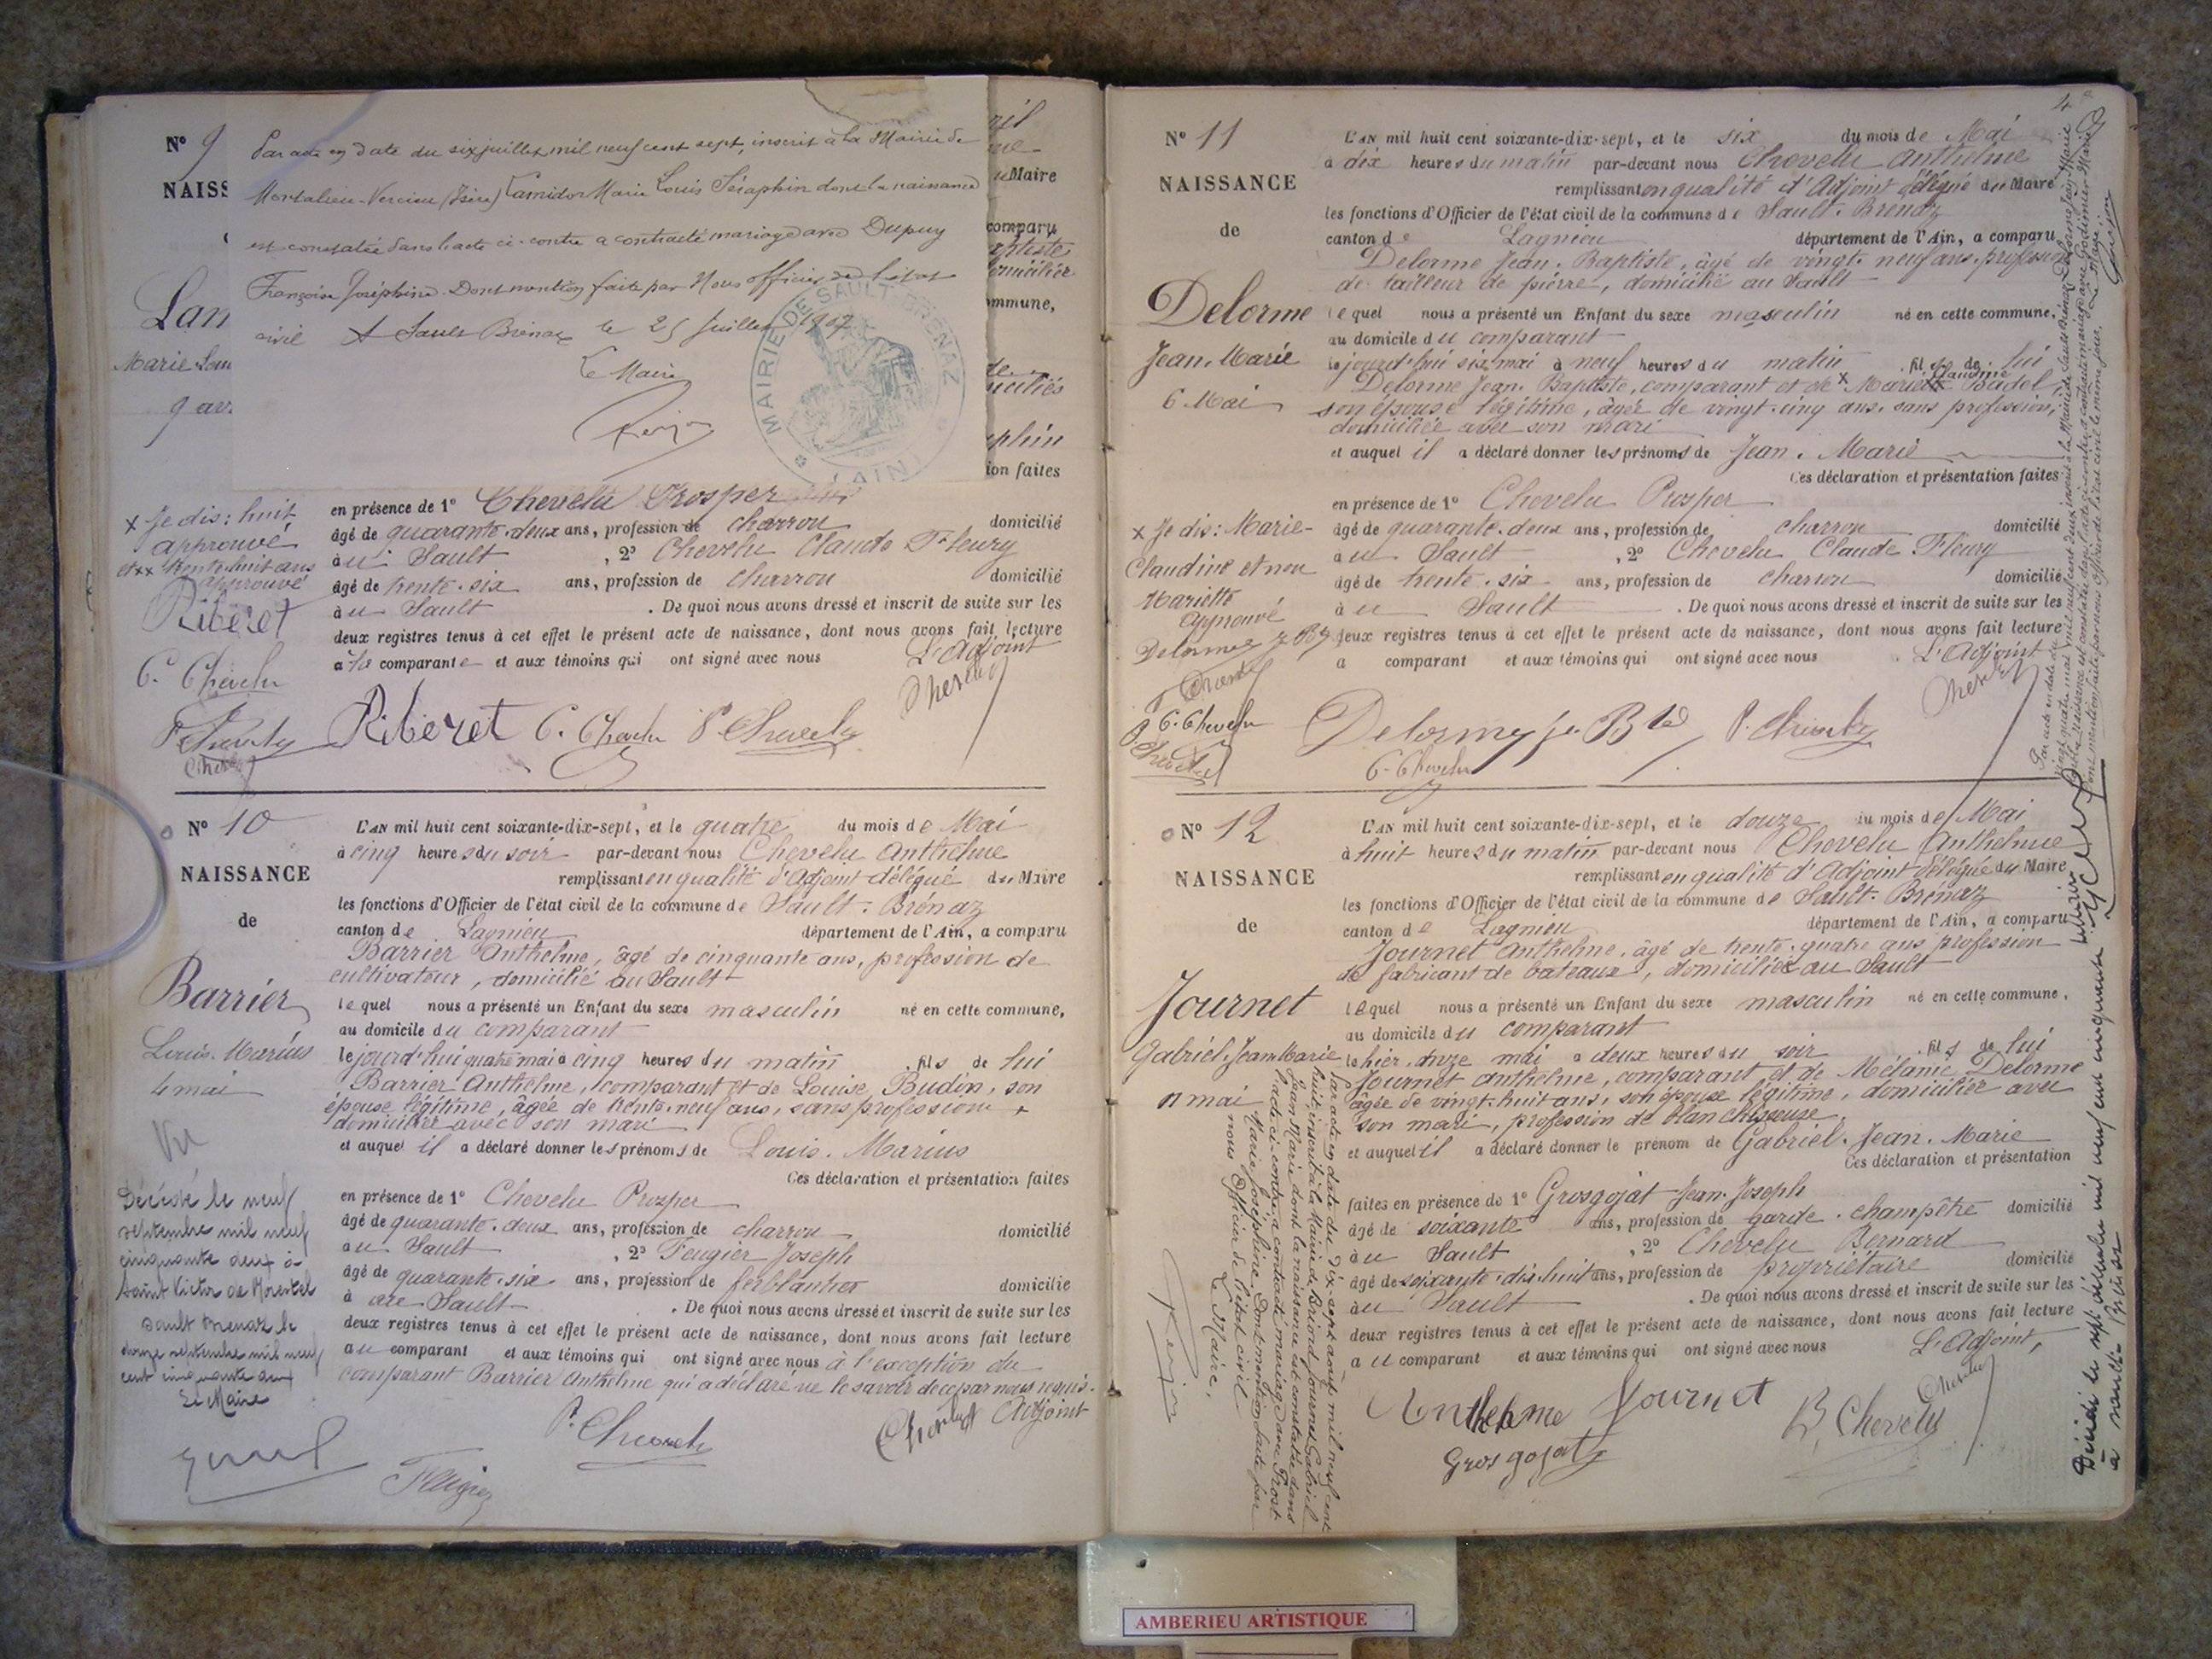 N° 9
NAISS
Lan
Marie Lou
9 avr
Par acte en date du six juillet mil neuf cent sept, inscrit à la Mairie de
Montalieu-Vercieu (Isère) Lamidor Marie Louis Séraphin dont la naissance
est constatée dans l'acte ci-contre a contracté mariage avec Dupuy
Françoise Joséphine. Dont mention faite par Nous officier de l'état
civil A Sault Brénaz le 25 Juillet 1907
Le Maire
MAIRIE DE SAULT-BRENAZ
(AIN)
ril
Maire
comparu
aptiste
domiciliée
ommune,
de
iciliés
phin
ion faites
en présence de 1° Chevelu Prosper
âgé de quarante-deux ans, profession de charron domicilié
à u Sault , 2° Chevelu Claude Fleury
âgé de trente-six ans, profession de charron domicilié
à u Sault . De quoi nous avons dressé et inscrit de suite sur les
deux registres tenus à cet effet le présent acte de naissance, dont nous avons fait lecture
a la comparante et aux témoins qui ont signé avec nous L'Adjoint
x Je dis: huit
approuvé
et xx trente huit ans
approuvé
Riberet
C. Chevelu
P. Chevelu
Chevelu
Riberet C. Chevelu P. Chevelu Chevelu
N° 10
NAISSANCE
de
Barrier
Louis. Marius
4 mai
Vu
Décédé le neuf
septembre mil neuf
cinquante deux à
Saint Victor de Morestel
Sault Brenaz le
douze septembre mil neuf
cent cinquante deux
Le Maire
L'AN mil huit cent soixante-dix-sept, et le quatre du mois de Mai
à cinq heures du soir par-devant nous Chevelu Anthelme
remplissant en qualité d'Adjoint délégué du Maire
les fonctions d'Officier de l'état civil de la commune de Sault-Brénaz
canton de Lagnieu département de l'Ain, a comparu
Barrier Anthelme, âgé de cinquante ans, profession de
cultivateur, domicilié au Sault
lequel nous a présenté un Enfant du sexe masculin né en cette commune,
au domicile du comparant
le jourd'hui quatre mai à cinq heures du matin fils de lui
Barrier Anthelme, comparant et de Louise Budin, son
épouse légitime, âgée de trente-neuf ans, sans profession
domiciliée avec son mari
et auquel il a déclaré donner les prénoms de Louis. Marius
Ces déclaration et présentation faites
en présence de 1° Chevelu Prosper
âgé de quarante-deux ans, profession de charron domicilié
au Sault , 2° Feugier Joseph
âgé de quarante-six ans, profession de ferblantier domicilie
à au Sault . De quoi nous avons dressé et inscrit de suite sur les
deux registres tenus à cet effet le présent acte de naissance, dont nous avons fait lecture
au comparant et aux témoins qui ont signé avec nous à l'exception du
comparant Barrier Anthelme qui a déclaré ne le savoir de ce par nous requis.
P. Chevelu Chevelu Adjoint
Feugier
4
N° 11
NAISSANCE
de
Delorme
Jean. Marie
6 Mai
x Je dis: Marie-
Claudine et non
Mariette
approuvé
Delorme J Bte
P. Chevelu
C. Chevelu
Chevelu
L'AN mil huit cent soixante-dix-sept, et le six du mois de Mai
à dix heures du matin par-devant nous Chevelu Anthelme
remplissant en qualité d'Adjoint délégué du Maire
les fonctions d'Officier de l'état civil de la commune de Sault-Brénaz
canton de Lagnieu département de l'Ain, a comparu
Delorme Jean-Baptiste, âgé de vingt-neuf ans, profession
de tailleur de pierre, domicilié au Sault
lequel nous a présenté un Enfant du sexe masculin né en cette commune,
au domicile du comparant
le jourd'hui six mai à neuf heures du matin fils de lui
Delorme Jean-Baptiste, comparant et de x Mariette Claudine Badel,
son épouse légitime, âgée de vingt-cinq ans, sans profession,
domiciliée avec son mari
et auquel il a déclaré donner les prénoms de Jean. Marie
Ces déclaration et présentation faites
en présence de 1° Chevelu Prosper
âgé de quarante-deux ans, profession de charron domicilié
à u Sault , 2° Chevelu Claude Fleury
âgé de trente-six ans, profession de charron domicilié
à u Sault . De quoi nous avons dressé et inscrit de suite sur les
deux registres tenus à cet effet le présent acte de naissance, dont nous avons fait lecture
a comparant et aux témoins qui ont signé avec nous . L'Adjoint
Delorme J. Bte P. Chevelu Chevelu
C. Chevelu
Par acte en date du
vingt quatre mai mil neuf cent deux inscrit à la Mairie de Sault-Brénaz Delorme Jean Marie
dont la naissance est constatée dans l'acte ci-contre a contracté mariage avec Godimier Marie
Dont mention faite par nous officier de l'état civil le même jour. Le Maire
N° 12
NAISSANCE
de
Journet
Gabriel. Jean Marie
11 mai
L'AN mil huit cent soixante-dix-sept, et le douze du mois de Mai
à huit heures du matin par-devant nous Chevelu Anthelme
remplissant en qualité d'Adjoint délégué du Maire
les fonctions d'Officier de l'état civil de la commune de Sault-Brénaz
canton de Lagnieu département de l'Ain, a comparu
Journet Anthelme, âgé de trente-quatre ans profession
de fabricant de bateaux, domicilié au Sault
lequel nous a présenté un Enfant du sexe masculin né en cette commune,
au domicile du comparant
le hier, onze mai a deux heures du soir fils de lui
Journet Anthelme, comparant et de Mélanie Delorme
âgée de vingt-huit ans, son épouse légitime, domiciliée avec
son mari, profession de blanchisseuse
et auquel il a déclaré donner le prénom de Gabriel. Jean. Marie
Ces déclaration et présentation
faites en présence de 1° Grosgojat Jean-Joseph
âgé de soixante ans, profession de garde-champêtre domicilié
à u Sault , 2° Chevelu Bernard
âgé de soixante-dix huit ans, profession de propriétaire domicilié
àu Sault . De quoi nous avons dressé et inscrit de suite sur les
deux registres tenus à cet effet le présent acte de naissance, dont nous avons fait lecture
a u comparant et aux témoins qui ont signé avec nous L'Adjoint,
Anthelme Journet B. Chevelu Chevelu
Grosgojat
Par acte en date du dix-sept août mil neuf cent
huit, inscrit à la Mairie de Briord, Journet Gabriel
Jean Marie dont la naissance est constatée dans
l'acte ci-contre, a contracté mariage avec Prost
Marie Joséphine. Dont mention faite par
nous Officier de l'état civil
Le Maire,
Décédé le sept décembre mil neuf cent cinquante
à Sault-Brénaz
AMBERIEU ARTISTIQUE